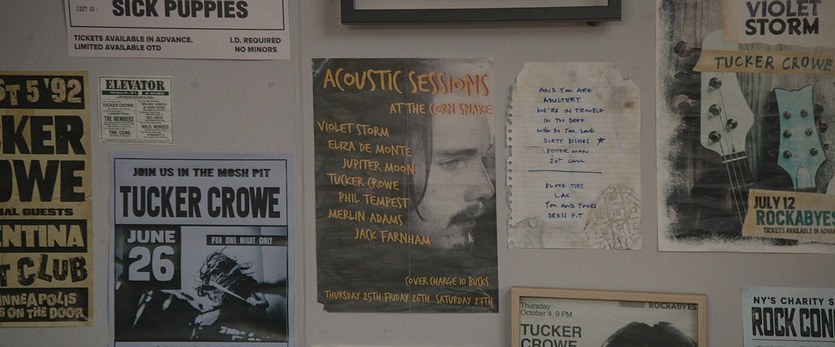 SICK PUPPIES
TICKETS AVAILABLE IN ADVANCE.
LIMITED AVAILABLE OTD
I.D. REQUIRED
NO MINORS
ST 5 '92
CKER
OWE
IAL GUESTS
ENTINA
T CLUB
NNEAPOLIS
G ON THE DOOR
ELEVATOR
TUCKER CROWE
THE MEMBERS
THE CURE
WILD HORSES
JOIN US IN THE MOSH PIT
TUCKER CROWE
JUNE
26
FOR ONE NIGHT ONLY
ACOUSTIC SESSIONS
AT THE CORN SNAKE
VIOLET STORM
ELIZA DE MONTE
JUPITER MOON
TUCKER CROWE
PHIL TEMPEST
MERLIN ADAMS
JACK FARNHAM
COVER CHARGE 10 BUCKS
THURSDAY 25TH FRIDAY 26TH SATURDAY 27TH
AND YOU ARE
ADULTERY
WE'RE IN TROUBLE
IN TOO DEEP
WHO DO YOU LOVE
DIRTY DISHES
SPIDER MAN
20TH CALL
BLOOD TIES
LAX
YOU AND YOURS
DRESS
VIOLET
STORM
TUCKER CROWE
JULY 12
ROCKABYES
TICKETS AVAILABLE IN ADVAN
Thursday
October 4, 9 PM
ROCKABYES
TUCKER
CROWE
NY'S CHARITY S
ROCK CON